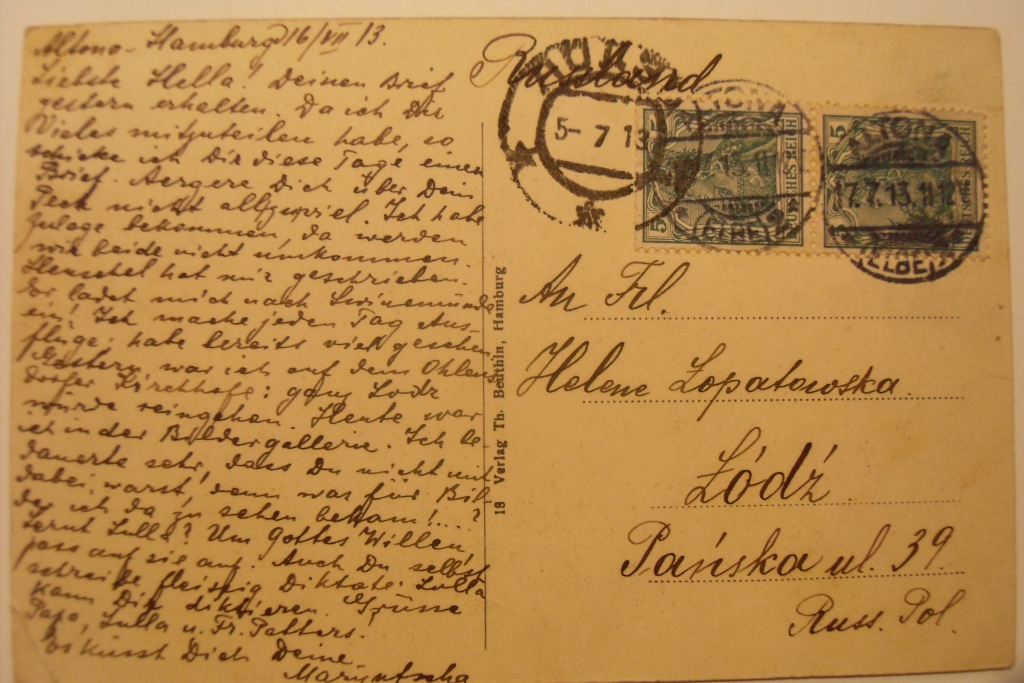 Altona-Hamburg 16/VII 13.
Liebste Hella! Deinen Brief
gestern erhalten. Da ich Dir
Vieles mitzuteilen habe, so
schicke ich Dir diese Tage einen
Brief. Aergere Dich über Dein
Pech nicht allzuviel. Ich habe
Zulage bekommen, da werden
wir beide nicht umkommen.
Henschel hat mir geschrieben.
Er ladet mich nach Swinemünde
ein! Ich mache jeden Tag Aus-
flüge; habe bereits viel gesehen.
Gestern war ich auf dem Ohlens
dorfer Kirchhofe: ganz Lodz
würde reingehen. Heute war
ich in der Bildergallerie. Ich be-
dauerte sehr, dass Du nicht mit
dabei warst, denn was für Bil-
der ich da zu sehen bekam!...?
Lernt Lulla? Um Gottes Willen,
pass auf sie auf. Auch Du selbst
schreibe fleissig Diktate. Lulla
kann Dir diktieren. Grüsse
Papa, Lulla u. Fr. Patters.
Es küsst Dich Deine
18 Verlag Th. Beuthin, Hamburg
Russland
5-7 13
ALTONA
(ELBE)
ALTONA
17.7.13.11-12
(ELBE)
5
DEUTSCHES REICH
5
DEUTSCHES REICH
An Frl.
Helene Łopatowska
Łódź
Pańska ul. 39.
Russ. Pol.